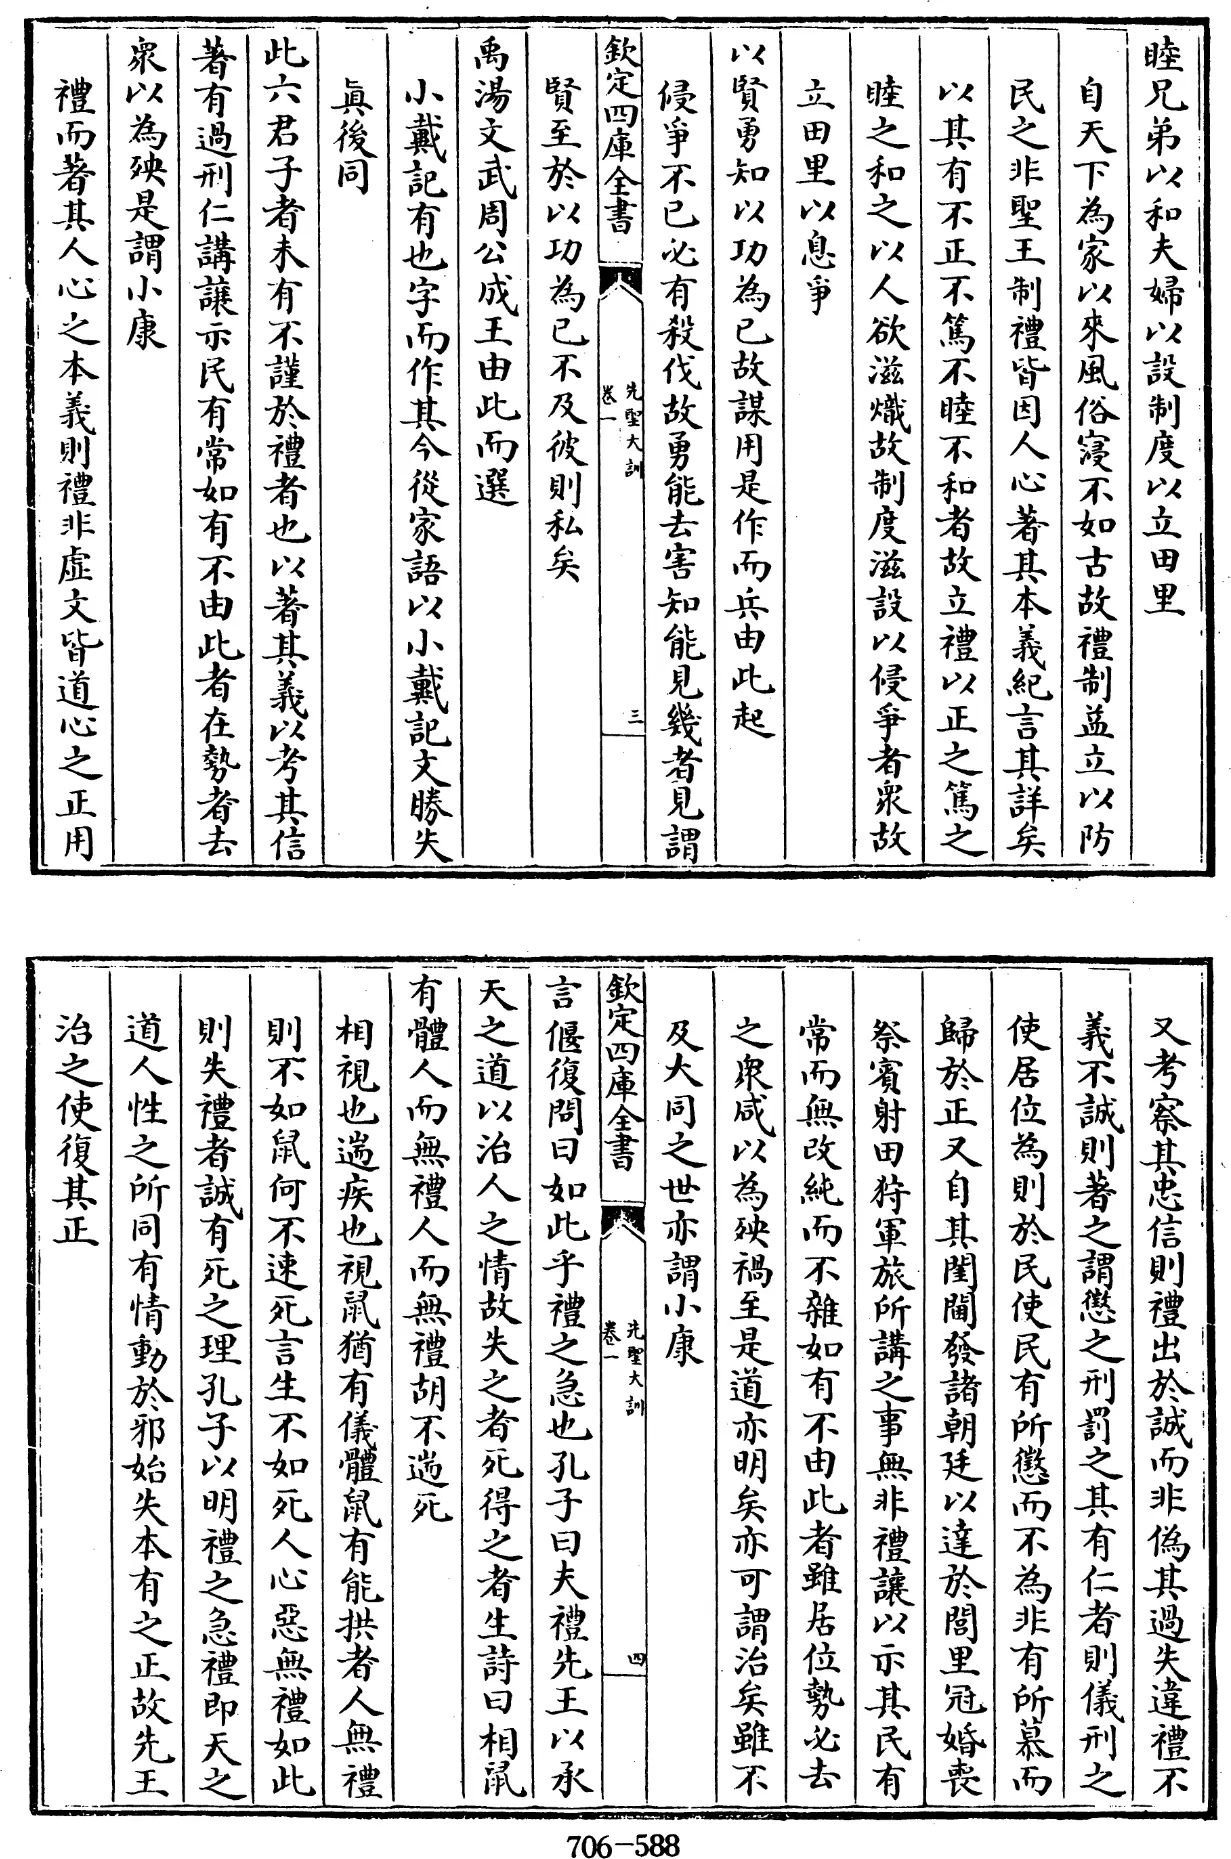 睦兄弟以和夫婦以設制度以立田里
自天下為家以來風俗寖不如古故禮制益立以防
民之非聖王制禮皆因人心著其本義紀言其詳矣
以其有不正不篤不睦不和者故立禮以正之篤之
睦之和之以人欲滋熾故制度滋設以侵爭者衆故
立田里以息爭
以賢勇知以功為已故謀用是作而兵由此起
侵爭不已必有殺伐故勇能去害知能見幾者見謂
欽定四庫全書
先聖大訓
卷一
三
賢至於以功為已不及彼則私矣
禹湯文武周公成王由此而選
小戴記有也字而作其今從家語以小戴記文勝失
眞後同
此六君子者未有不謹於禮者也以著其義以考其信
著有過刑仁講讓示民有常如有不由此者在勢者去
衆以為殃是謂小康
禮而著其人心之本義則禮非虛文皆道心之正用
又考察其忠信則禮出於誠而非偽其過失違禮不
義不誠則著之謂懲之刑罰之其有仁者則儀刑之
使居位為則於民使民有所懲而不為非有所慕而
歸於正又自其閨閫發諸朝廷以達於閭里冠婚喪
祭賓射田狩軍旅所講之事無非禮讓以示其民有
常而無改純而不雜如有不由此者雖居位勢必去
之衆咸以為殃禍至是道亦明矣亦可謂治矣雖不
及大同之世亦謂小康
欽定四庫全書
先聖大訓
卷一
四
言偃復問曰如此乎禮之急也孔子曰夫禮先王以承
天之道以治人之情故失之者死得之者生詩曰相鼠
有體人而無禮人而無禮胡不遄死
相視也遄疾也視鼠猶有儀體鼠有能拱者人無禮
則不如鼠何不速死言生不如死人心惡無禮如此
則失禮者誠有死之理孔子以明禮之急禮即天之
道人性之所同有情動於邪始失本有之正故先王
治之使復其正
706-588